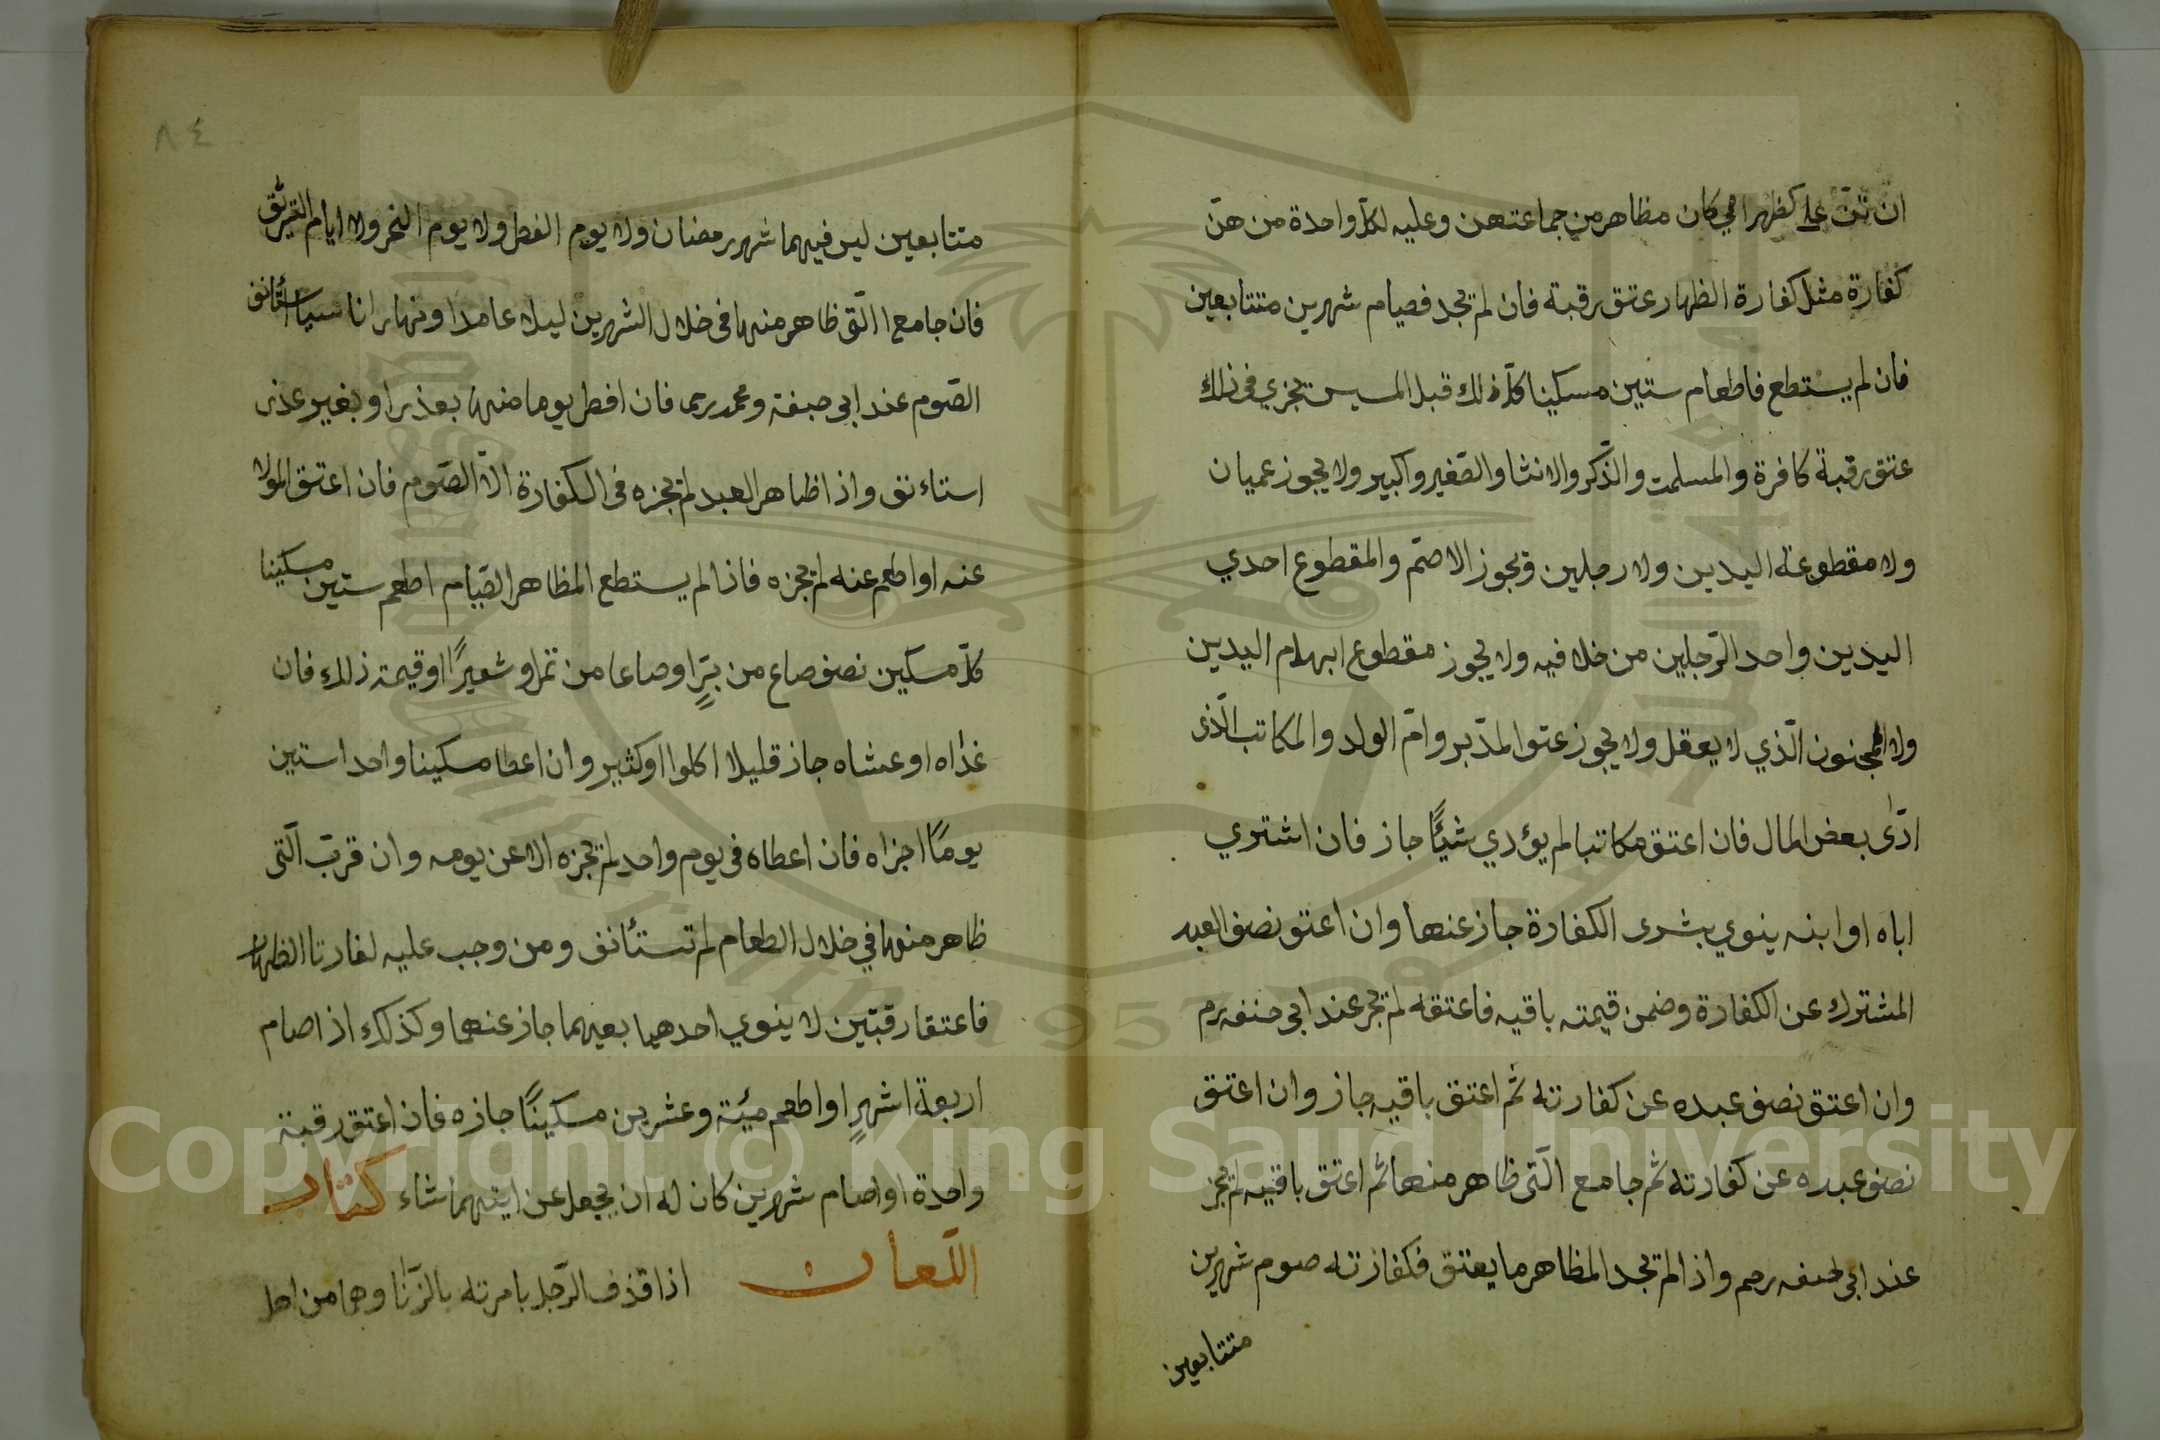 انتن على كظهر امي كان مظاهر من جماعتهن وعليه لكل واحدة من هن
كفارة مثل كفارة الظهار عتق رقبة فان لم تجد فصيام شهرين متتابعين
فان لم يستطع فاطعام ستين مسكينا كل ذلك قبل المسيس تجزي في ذلك
عتق رقبة كافرة والمسلمت والذّكر والانثا والصّغير واكبير ولا يجوز عميان
ولا مقطوعة اليدين ولا رجلين ويجوز الاصمّ والمقطوع احدي
اليدين واحد الرّجلين من خلافيه ولا يجوز مقطوع ابهام اليدين
ولا المجنون الّذي لا يعقل ولا يجوز عتو المدّبر وامّ الولد والمكاتب الّذى
ادّى بعض المال فان اعتق مكاتبا لم يؤدي شيئًا جاز فان اشتري
اباه او ابنه ينوي بشرى الكفارة جاز عنها وان اعتو نصف العبد
المشترك عن الكفارة وضمن قيمته باقيه فاعتقه لم تجز عند ابى حنفه رم
وان اعتق نصف عبده عن كفارته ثم اعتق باقيه جاز وان اعتق
نصف عبده عن كفارته ثم جامع الّتى ظاهر منها ثم اعتق باقيه لم تجز
عند ابى حنفه رحم واذا لم تجد المظاهر ما يعتق فكفارته صوم شهرين
متتابعين
٨٤
متتابعين ليس فيهما شهر رمضان ولا يوم الفطر ولا يوم النحر ولا ايام التشريق
فان جامع الّتى ظاهر منها فى خلال الشهرين ليلا عامدا ونهارا ناسيا استأنف
الصّوم عند ابى حنفة ومحمد رحما فان افطر يوما منها بعذر او بغير عذر
استاءنف واذا ظاهر العبد لم تجزه فى الكفارة الّا الصّوم فان اعتق المولا
عنه او اطعم عنه لم تجزه فاذا لم يستطع المظاهر الصّيام اطعم ستين مسكينا
كلّ مسكين نصف صاع من برٍّ او صاعا من تمر او شعيرًا او قيمته ذلك فان
غدّاه او عشاه جاز قليلا اكلوا او كثير وان اعطا مسكينا واحدا ستين
يومًا اجزاه فان اعطاه فى يوم واحد لم تجزه الا عن يومه وان قرب الّتى
ظاهر منها في خلال الطعام لم تستئانف ومن وجب عليه لفارتا الظهار
فاعتقا رقبتين لا ينوي احدهيا بعيهما جاز عنهما وكذلك اذ اصام
اربعة اشهرٍ او اطعم ميئة وعشرين مسكينًا جازه فان اعتق رقبة
واحدة او اصام شهرين كان له ان يجعل عن ايتهما شاء كتاب
اللّعان اذا قذف الرّجل بامرته بالزّنا وهما من اهل
Copyright © King Saud University
1957